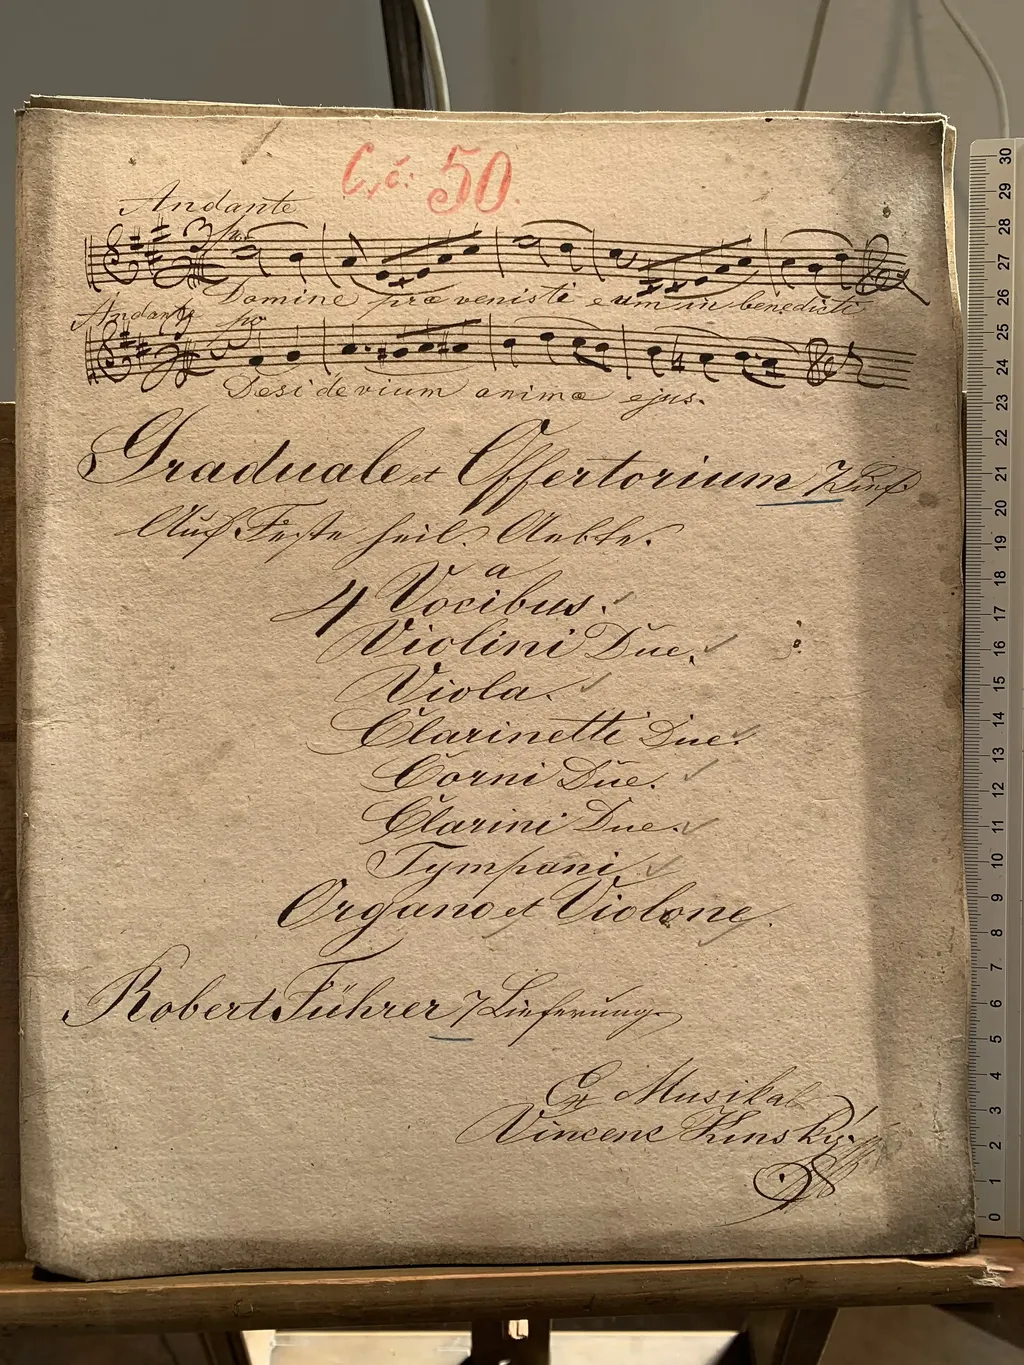 C. č. 50.
Andante
po
Domine præ venisti eum in benedicti
Andante
po
Desiderium animæ ejus.
Graduale et Offertorium 7 Lief
Auf Feste heil. Aebte.
a
4 Vocibus.
Violini Due.
Viola.
Clarinetti Due.
Corni Due.
Clarini Due.
Tympani
Organo et Violone.
Robert Führer 7 Lieferung
Ex Musikal
Vincenc Kinský
30
29
28
27
26
25
24
23
22
21
20
19
18
17
16
15
14
13
12
11
10
9
8
7
6
5
4
3
2
1
0